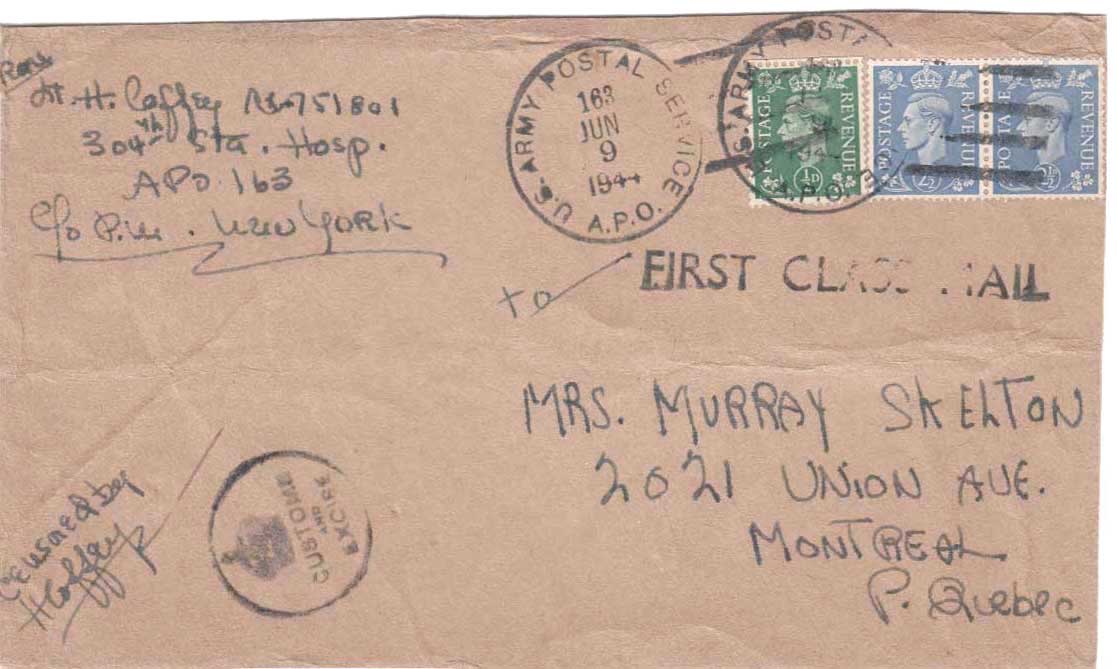 From
Lt. H. Caffey N-751801
304th Sta. Hosp.
APO. 163
C/o P.M. New York
U.S. ARMY POSTAL SERVICE
163
JUN
9
1944
A.P.O.
U.S. ARMY POSTAL
A.P.O.
POSTAGE REVENUE
½D
POSTAGE REVENUE
2½D
POSTAGE REVENUE
2½D
TO
FIRST CLASS MAIL
MRS. MURRAY SKELTON
2021 UNION AVE.
MONTREAL
P. Quebec
Censored by
H Caffey
CUSTOMS
AND
EXCISE